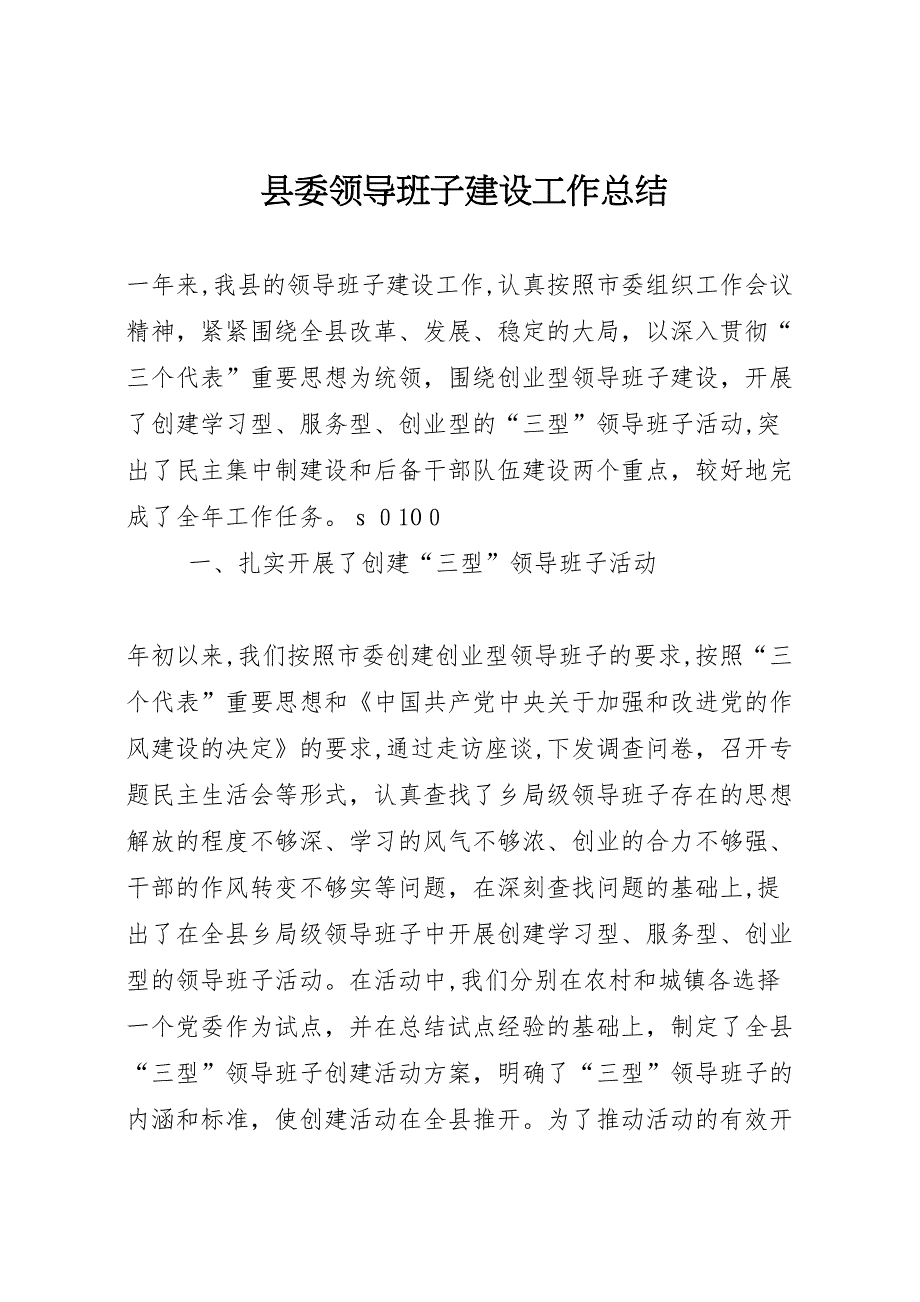 县委领导班子建设工作总结
一年来,我县的领导班子建设工作,认真按照市委组织工作会议
精神，紧紧围绕全县改革、发展、稳定的大局，以深入贯彻“
三个代表”重要思想为统领，围绕创业型领导班子建设，开展
了创建学习型、服务型、创业型的“三型”领导班子活动,突
出了民主集中制建设和后备干部队伍建设两个重点，较好地完
成了全年工作任务。 s 0 10 0
一、扎实开展了创建“三型”领导班子活动
年初以来,我们按照市委创建创业型领导班子的要求,按照“三
个代表”重要思想和《中国共产党中央关于加强和改进党的作
风建设的决定》的要求,通过走访座谈,下发调查问卷，召开专
题民主生活会等形式，认真查找了乡局级领导班子存在的思想
解放的程度不够深、学习的风气不够浓、创业的合力不够强、
干部的作风转变不够实等问题，在深刻查找问题的基础上,提
出了在全县乡局级领导班子中开展创建学习型、服务型、创业
型的领导班子活动。在活动中,我们分别在农村和城镇各选择
一个党委作为试点，并在总结试点经验的基础上，制定了全县
“三型”领导班子创建活动方案，明确了“三型”领导班子的
内涵和标准，使创建活动在全县推开。为了推动活动的有效开